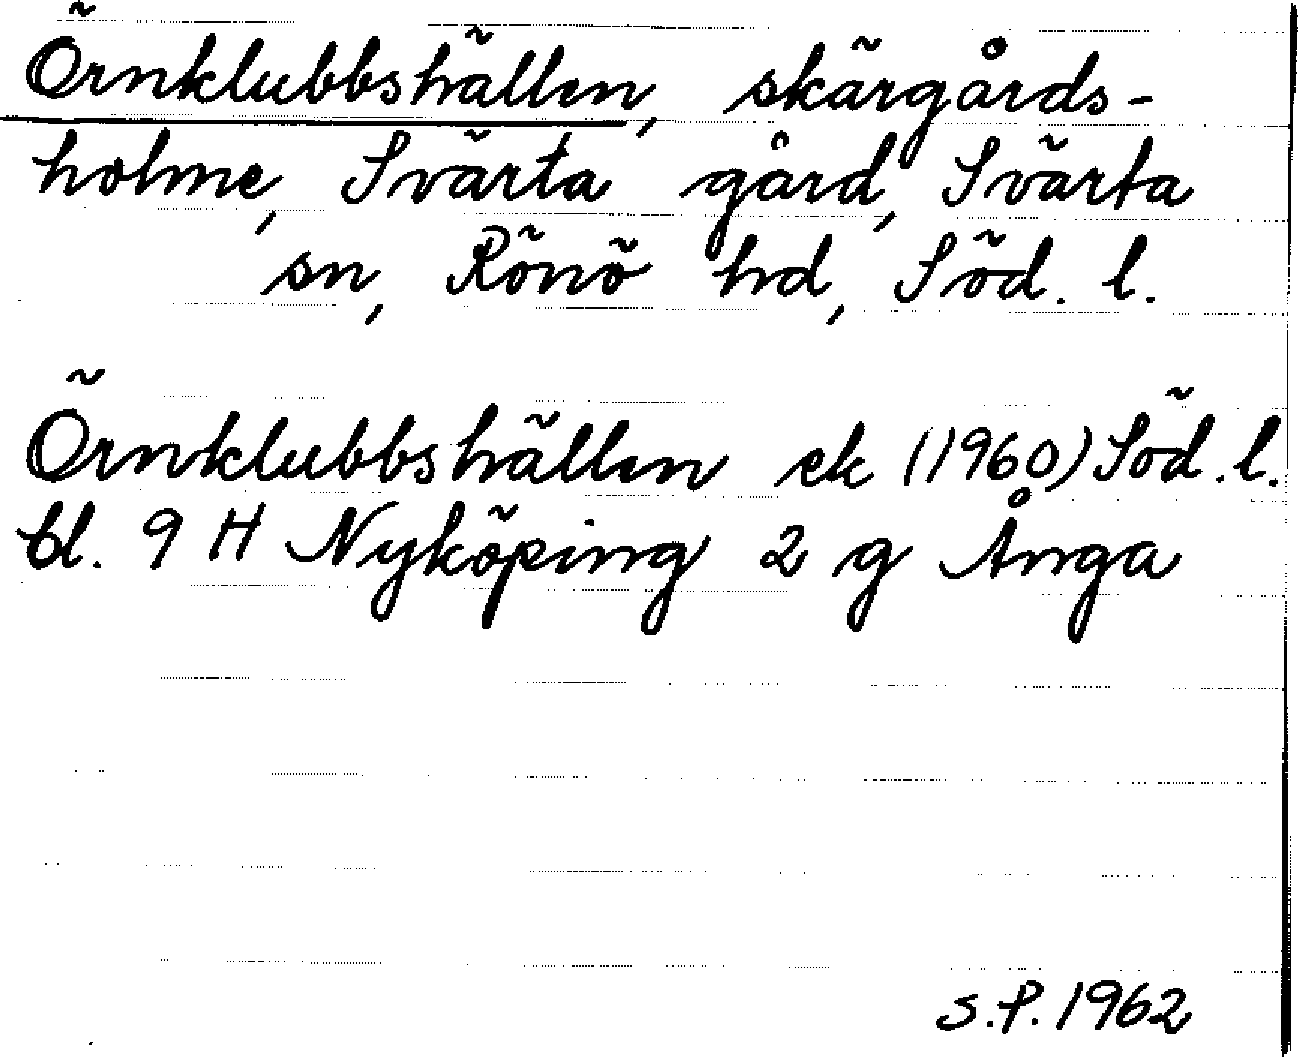 Örnklubbshällen, skärgårds-
holme, Svärta gård, Svärta
sn, Rönö hd, Söd. l.
Örnklubbshällen ek (1960) Söd. l.
bl. 9 H Nyköping 2 g Ånga
S.P. 1962